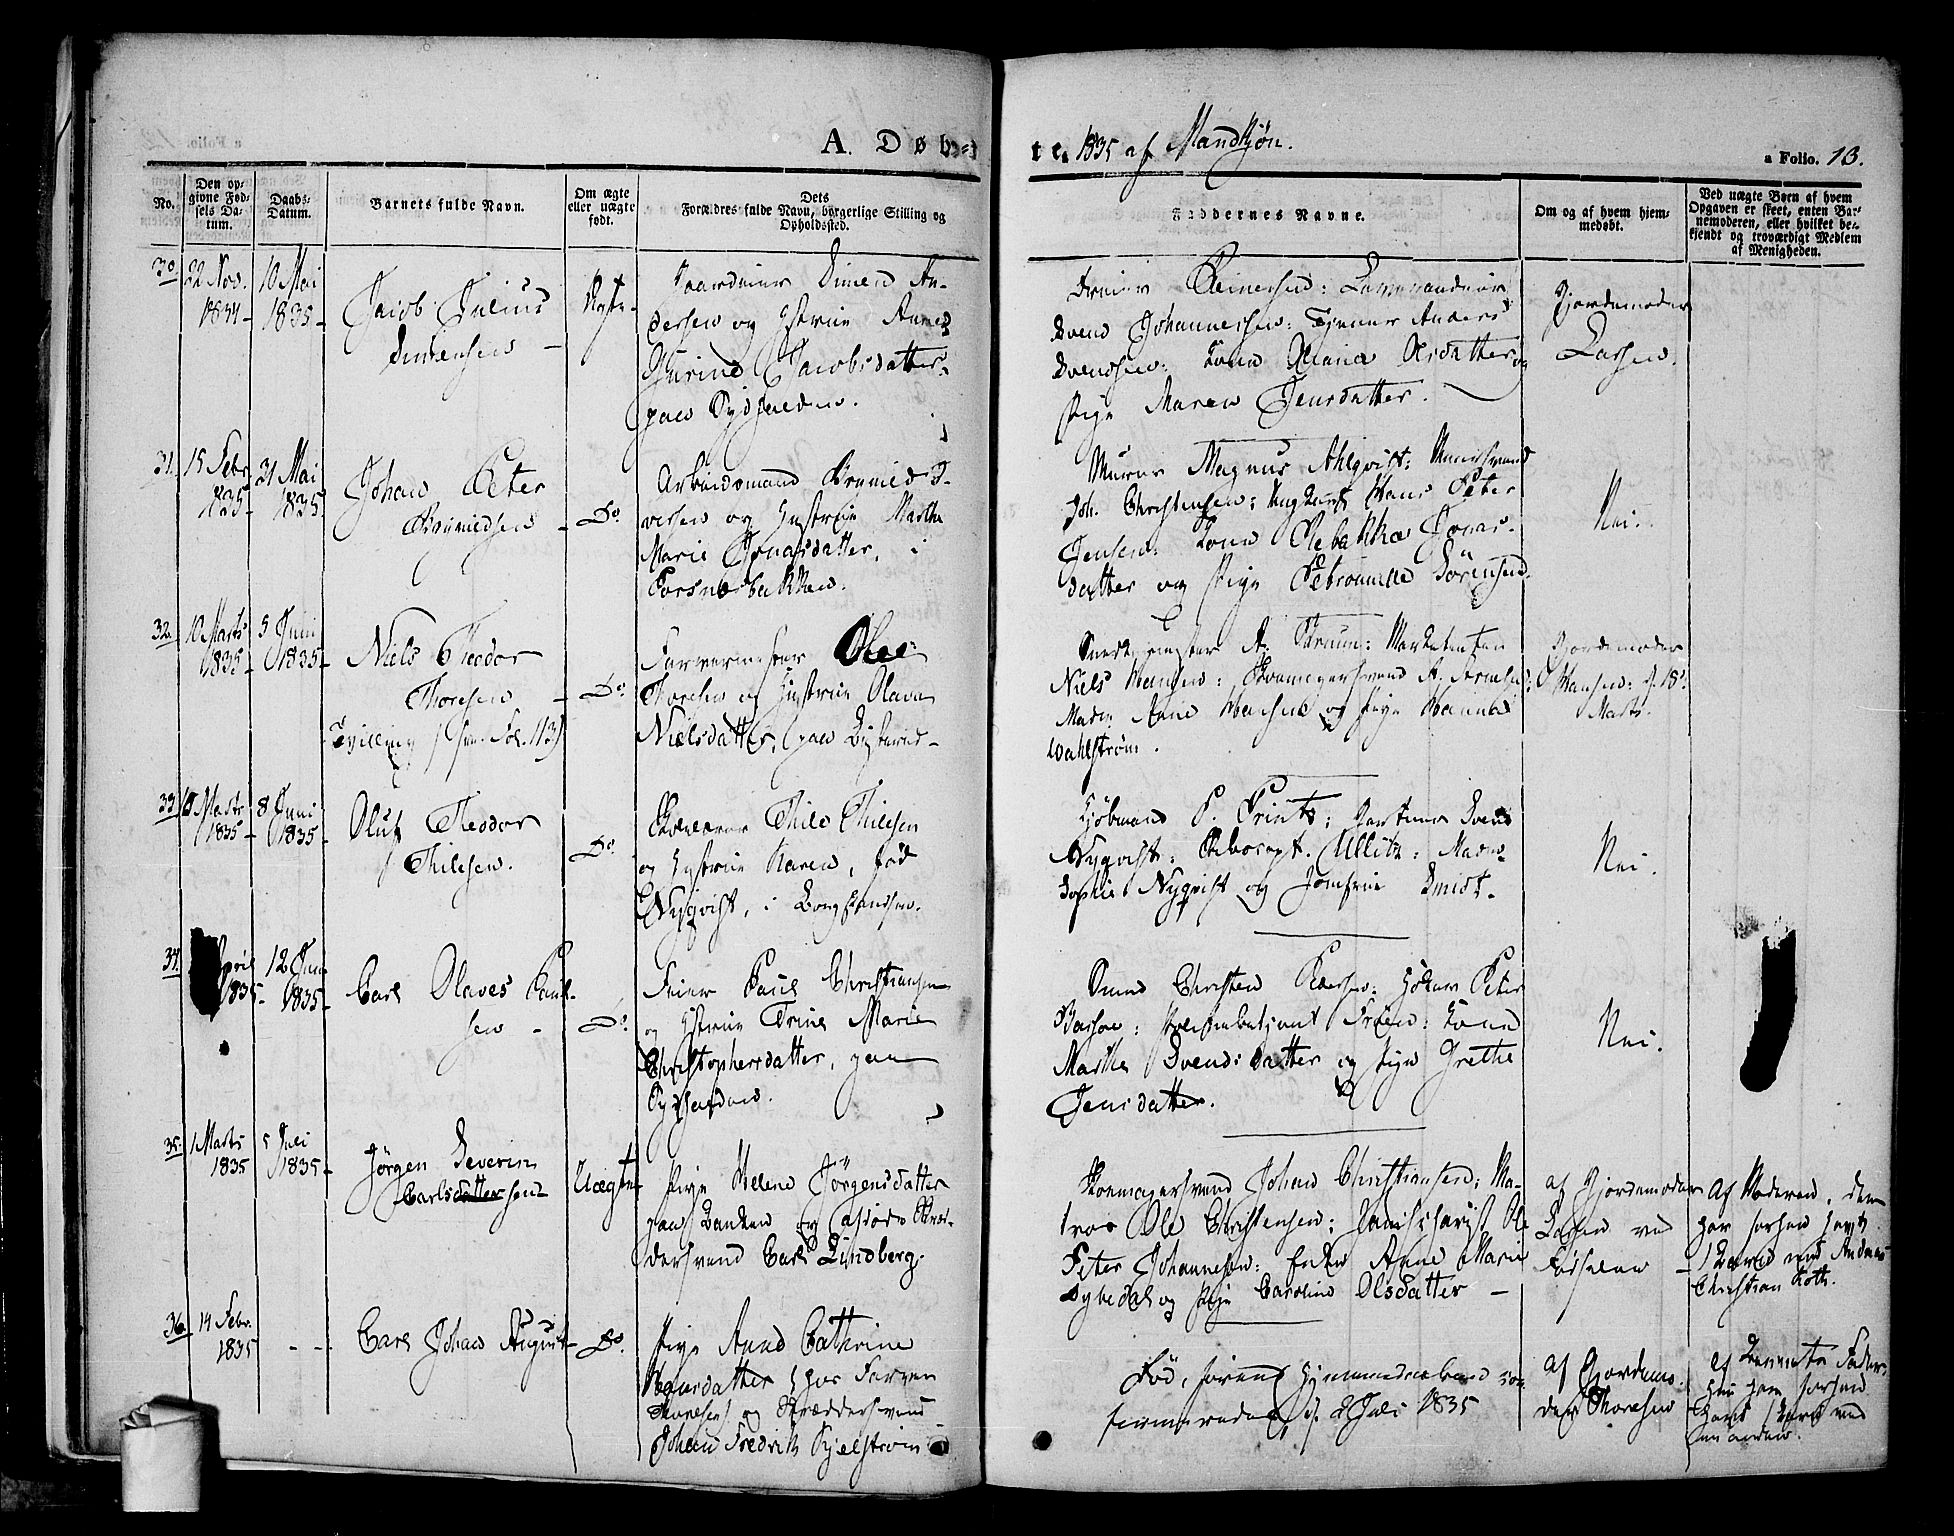 A. Døb-
te. 1835 af Mandkjøn.
a Folio. 13.
No.
Den op-
givne Fød-
sels Da-
tum.
Daabs-
Datum.
Barnets fulde Navn.
Om ægte
eller uægte
født.
Dets
Forældres fulde Navn, borgerlige Stilling og
Opholdssted.
Faddernes Navne.
Om og af hvem hjem-
medøbt.
Ved uægte Born af hvem
Opgaven er skeet, enten Bar-
nemoderen, eller hvilket be-
kjendt og troværdigt Medlem
af Menigheden.
30. 22 Nov.
1834-
10 Mai
1835-
Jacob Julius
Simensen -
Ægte-
Simend An-
dersen og Hustrue Anne
Gurine Jacobsdatter,
paa Sydsiden.
Reinersen:
Svend Johannessen: Tjener Anders
Svendsen: Kone Maria Olsdatter og
Pige Maren Jensdatter.
Gjordemoder
Larsen.
31. 15 Febr
1835-
31 Mai
1835
Johan Peter
Bryniedsen -
Do.
Arbeidsmand Brynied I-
versen og Hustrue Marthe
Marie Jonasdatter, i
Forsnesbakken.
Murer Magnus Ahlqvist: Muursvend
Joh. Christensen: Hans Peter
Jensen: Kone Rebakka Jonas-
datter og Pige Petronnelle Sörensend.
Nei.
32. 10 Marts
1835-
5 Juni
1835-
Niels Theodor
Thoresen -
Tvilling (Fol. 113)
Do.
Farvermester Ole
Thoresen og Hustrue Olava
Nielsdatter, paa
A. Strøm:
Niels Hansen: Skomagersvend A.
Mad. Anne Hansen og Pige Hanna
Wahlstrøm.
Gjordemoder
Hansen: d. 18.
Marts.
33.
Marts
1835-
8 Juni
1835-
Oluf Theodor
Thilesen.
Do.
Thile Thilesen
og Hustrue Karen, fød
Nyqvist, i
Kjöbmand P. Printz: Gartner Svend
Nyqvist: Ullitz: Mad.
Sophie Nyqvist og Jomfrue Smidt.
Nei.
34.
April
1835-
12 Juni
1835-
Carl Olaves Paul-
sen -
Do.
Feier Paul Christiansen
og Hustrue Trine Marie
Christophersdatter, paa
Sydsiden.
Smed Christen Peter
Kone
Marthe Svendsdatter og Pige Grethe
Jensdatter.
Nei.
35. 1 Marts
1835
5 Juli
1835-
Jörgen Severin
Carlsdattersen
Uægte
Pige Helene Jörgensdatter
paa Banken og afdøde Skræd-
dersvend Carl Lindberg.
Skomagersvend Johan Christiansen: Ma-
tros Ole Christensen:
Peter Johannesen: Enken Anne Marie
Dybedal og Pige Caroline Olsdatter -
af Gjordemoder
Larsen ved
Födselen -
Af Moderen, den
har forhen havt
1 Barn med Andreas
Christian Roth.
36. 14 Febr.
1835
- -
Carl Johan August-
Do.
Pige Anne Cathrine
Hansdatter (hos Farver
Thoresen) og Skræddersvend
Johan Fredrik Kjelström
Död, förend Hjemmedaaben
2 Juli 1835
af Gjordemo-
der Thoresen
af
hun har forhen
1 Barn med
en anden.